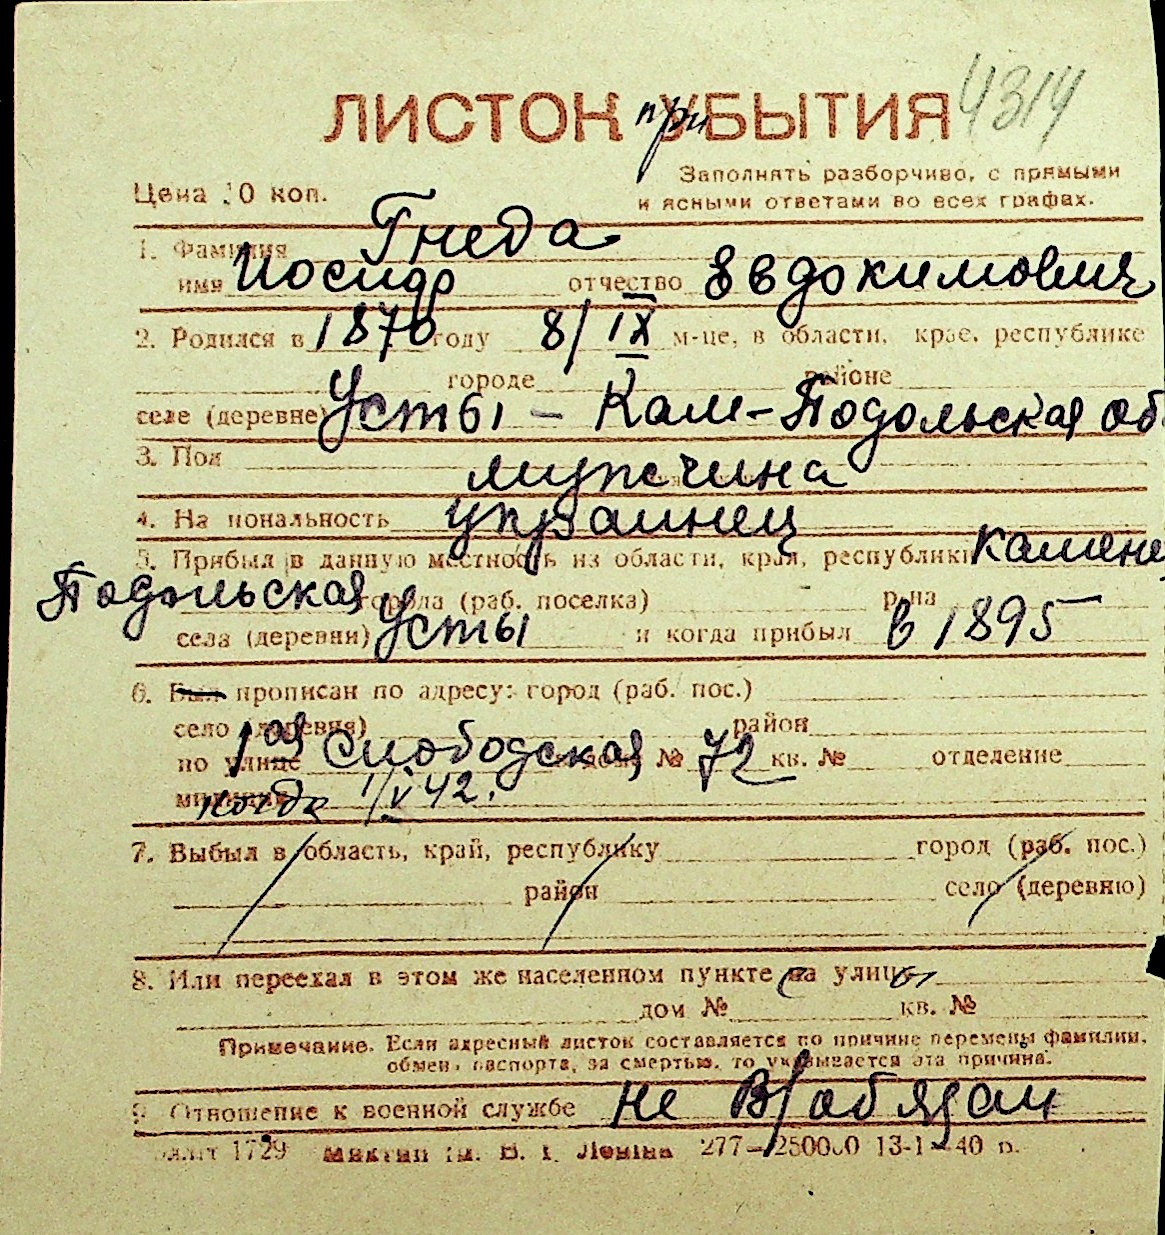 ЛИСТОК УБЫТИЯ при 4314
Цена 10 коп.
Заполнять разборчиво, с прямыми
и ясными ответами во всех графах.
1. Фамилия Гнеда
имя Иосифр отчество Евдокимович
2. Родился в 1870 году 8/IX м-це, в области, крае, республике
городе районе
селе (деревне) Усты – Кам-Подольская об
3. Пол мужчина
4. Национальность украинец
5. Прибыл в данную местность из области, края, республики Камене
Подольская города (раб. поселка) р-на
села (деревни) Усты и когда прибыл в 1895
6. Был прописан по адресу: город (раб. пос.)
село (деревня) район
по улице 1ая Слободская дом № 72 кв. № отделение
милиции когда 1/V 42.
7. Выбыл в область, край, республику город (раб. пос.)
район село (деревню)
8. Или переехал в этом же населенном пункте на улицу
дом № кв. №
Примечание. Если адресный листок составляется по причине перемены фамилии,
обмена паспорта, за смертью, то указывается эта причина.
9. Отношение к военной службе не в/обязан
1729 ім. В. І. Леніна 277–250000 13-1–40 р.